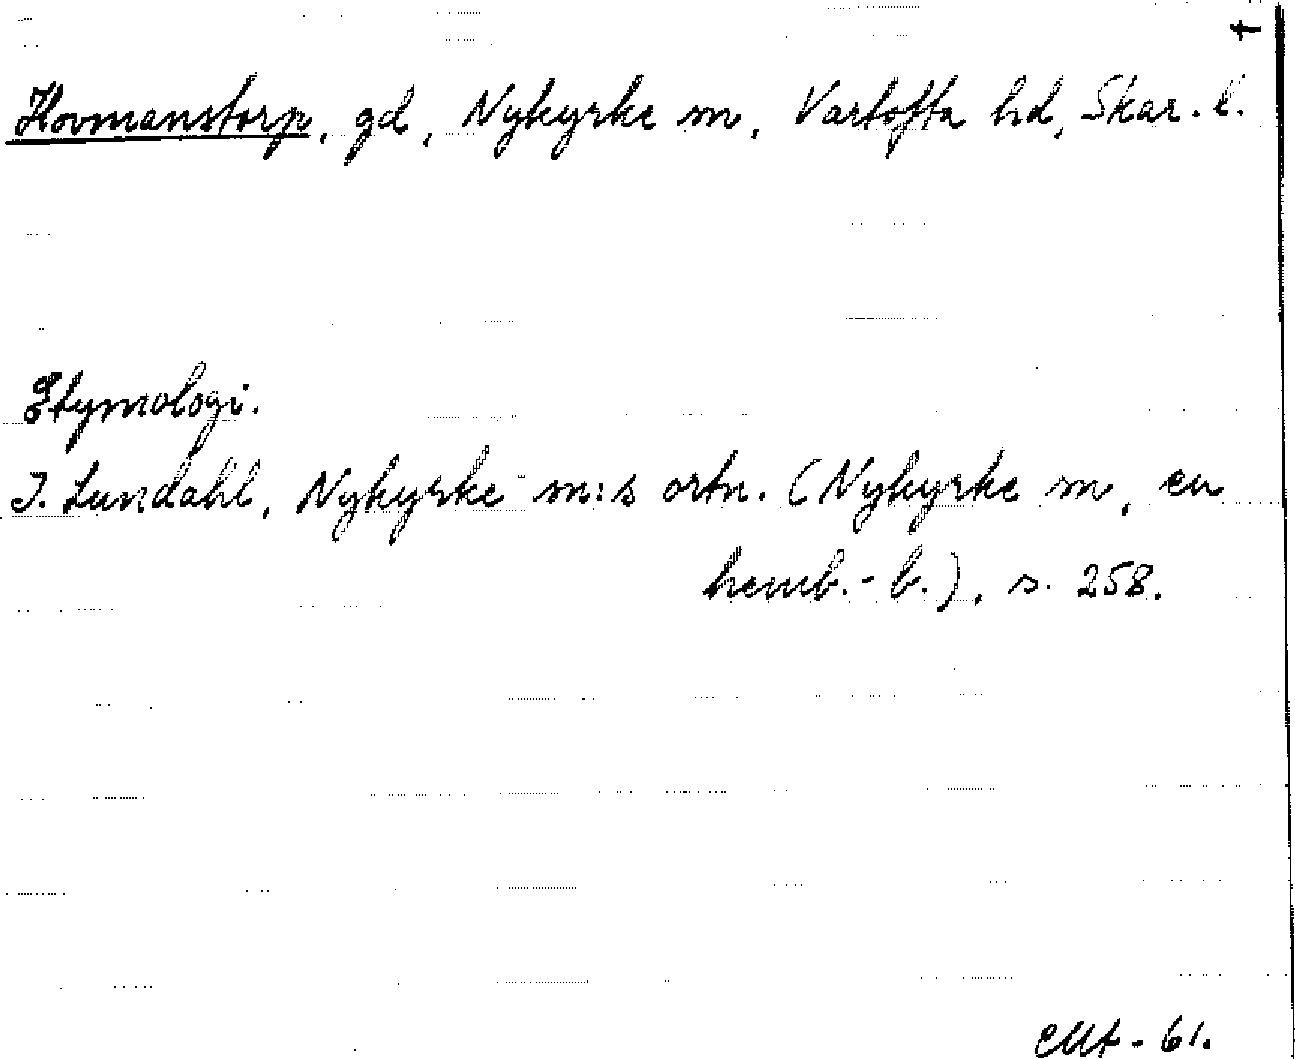 Hovmanstorp, gd, Nykyrke sn, Vartofta hd, Skar. l.
Etymologi.
I. Lundahl, Nykyrke sn:s ortn. (Nykyrke sn, en
hemb.-b.), s. 258.
61.